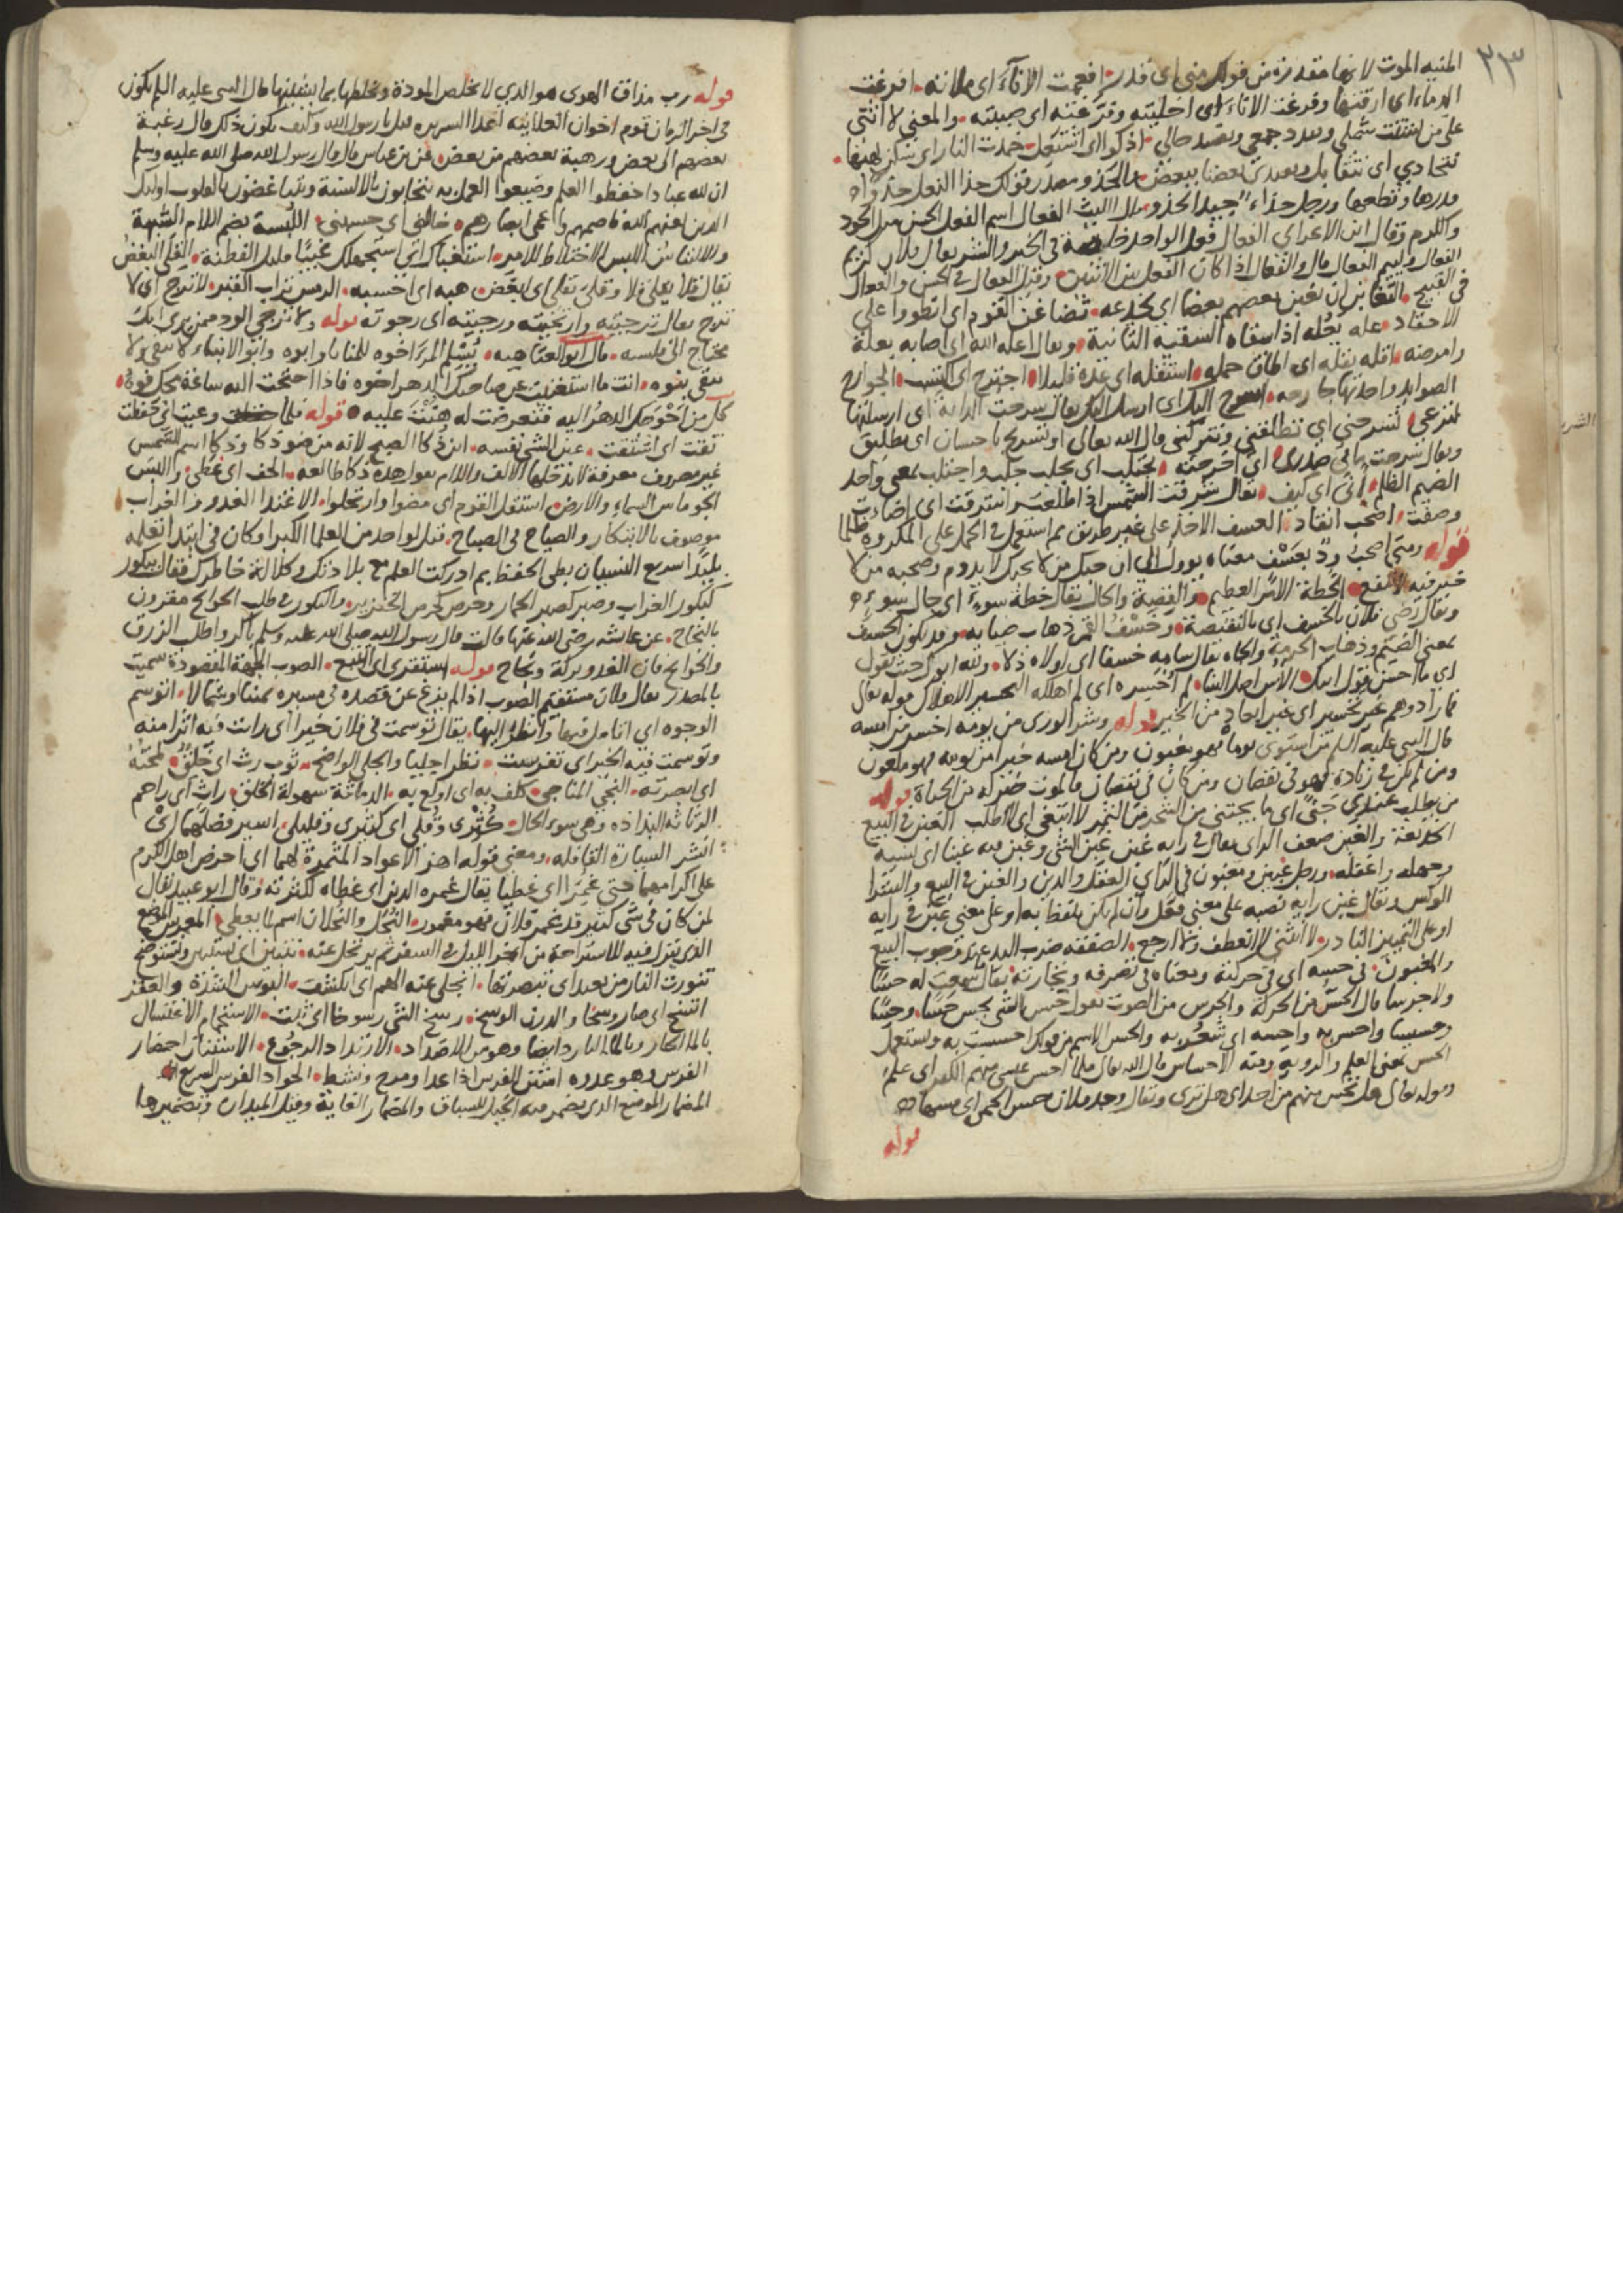 ٢٣
المنيه الموت لانها مقدرة من قولك مني اى قدر افعمت الاناء اى ملأته افرغت
الدماء اى ارقتها وفرغت الاناء اى اخليته وفرغته اى صببته والمعنى لا انثنى
على من شتت شملى وبدد جمعى وقصد حالى اذكوا اى اشتعل خمدت النار اى سكن لهبها
نتحادى اى نتقابل ويعدى بعضنا ببعض والحذو مصدر قولك حذا النعل حذوا
وقدرها وقطعها ورجل حذاء جيد الحذو قال الليث الفعال اسم الفعل الحسن مثل الجود
والكرم وقال ابن الاعرابي الفعال فعل الواحد خاصة فى الخير والشر يقال فلان كريم
الفعال ولئيم الفعال قال والفعال اذا كان الفعل بين الاثنين وقيل الفعال فى الحسن والفعال
فى القبيح التغابن ان يغبن بعضهم بعضا اى يخدعه تضاغن القوم اى انطووا على
الاحقاد عله يعله اذا سقاه السقية الثانية ويقال اعله الله اى اصابه بعلة
وامرضه اقله يقله اى اطاق حمله استقله اى عده قليلا اجترح اى اكتسب الجوارح
الصوايد واحدتها جارحه اسرح اليك اى ارسل اليك يقال سرحت الدابة اى ارسلتها
لترعى تسرحنى اى تطلقنى وتتركنى قال الله تعالى او تسريح باحسان اى تطليق
ويقال سرحت ما فى صدرى اى اخرجته يجتلب اى يجلب جلب واجتلب بمعنى واحد
الضيم الظلم انى اى كيف يقال شرقت الشمس اذا طلعت اشرقت اى اضاءت
وصفت اصحب انقاد العسف الاخذ على غير طريق ثم استعمل فى الحمل على المكروه ظلما
قوله ومتى اصحب ود بعسف معناه يوول الى ان حبك من لا يحبك لا يدوم وصحبه من لا
خير فيه لا تنفع الخطة الامر العظيم والقضية والحال يقال خطة سوء اى حال سوء
ويقال رضى فلان بالخسف اى بالنقيصة وخسف القمر ذهاب ضيائه وقد يكون الخسف
بمعنى الضيم وذهاب الحرمة والجاه يقال سامه خسفا اى اولاه ذلا ولله ابوك حيث تقول
اى ما احسن قول ابيك الاس اصل البنا لم اخسره اى لم اهلكه التخسير الاهلاك قوله تعالى
فما زادوهم غير تخسير اى غير ابعاد من الخير قوله وشر الورى من يومه اخسر من امسه
قال النبى عليه السلم من استوى يوماه فهو مغبون ومن كان امسه خيرا من يومه فهو ملعون
ومن لم يكن فى زيادة فهو فى نقصان ومن كان فى نقصان فالموت خير له من الحياة قوله
من يطلب عندى جنى اى ما يجتنى من الشجر من الثمر لا ابتغى اى لا اطلب الغبن فى البيع
الخديعة والغبن ضعف الراى يقال فى رايه غبن غبن الشى وغبن فيه غبنا اى نسيه
وجهله واغفله ورجل غبين ومغبون فى الراى العقل والدين والغبن فى البيع والشرا
الوكس ويقال غبن رايه نصبه على معنى فعل وان لم يكن يلفظ به او على معنى غبن فى رايه
او على التمييز النادر لا انثنى لا انعطف ولا ارجع الصفقه ضرب اليد عند وجوب البيع
والمغبون فى حسه اى فى حركته ومعناه فى تصرفه وتجارته يقال سمعت له حسا
ولا جرسا قال الحس من الحركة والجرس من الصوت يقول حس بالشى يحس حسا وحسا
وحسيسا واحس به واحسه اى شعر به والحس الاسم من قولك احسست به ويستعمل
الحس بمعنى العلم والروية ومنه الاحساس قال الله تعالى فلما احس عيسى منهم الكفر اى علم
وقوله تعالى هل تحس منهم من احد اى هل ترى ويقال وجد فلان حس الحمى اى مسها
قوله
قوله رب مذاق الهوى هو الذى لا يخلص المودة ويخلطها بما ينغصها قال النبى عليه السلم يكون
فى اخر الزمان قوم اخوان العلانية اعدا السريره قيل يا رسول الله وكيف يكون ذلك قال رغبة
بعضهم الى بعض ورهبة بعضهم من بعض وعن بن عباس قال قال رسول الله صلى الله عليه وسلم
ان لله عبادا حفظوا العلم وضيعوا العمل به يتحابون بالالسنة ويتباغضون بالقلوب اوليك
الذين لعنهم الله فاصمهم واعمى ابصارهم خالنى اى حسبنى اللبسة بضم اللام الشبهة
والالتباس اللبس الاختلاط للامر استغباك اى استجهلك غبيا قليل الفطنة القلى البغض
يقال قلا يقلى قلا وقلى تقلى اى ابغض هبه اى احسبه الرمس تراب القبر لا ترج اى لا
ترج يقال ترجيته وارتجيته ورجيته اى رجوته قوله ولا ترجى الود ممن يرى انك
محتاج الى فلسه قال ابو العتاهيه يسلم المرء اخوه للمنايا وابوه وابو الابناء لا يبقى ولا
يبقى بنوه وانت ما استغنيت عن صاحبك الدهر اخوه فاذا احتجت اليه ساعة مجك فوه
كل من احوجك الدهر اليه فتعرضت له هنت عليه قوله فلما وعيت اى حفظت
تقت اى اشتقت عين الشى نفسه ابن ذكا الصبح لانه من ضو ذكا وذكا اسم للشمس
غير مصروف معرفة لا تدخلها الالف واللام يقول هذه ذكا طالعه الحف اى غطى والبس
الجو ما بين السماء والارض استقل القوم اى مضوا وارتحلوا الاغتدا الغدو والغراب
موصوف بالابتكار والصياح فى الصباح قيل لواحد من العلما الكبرا وكان فى ابتدا تعلمه
بليدا سريع النسيان بطى الحفظ بم ادركت العلم مع بلادتك وكلالة خاطرك فقال ببكور
كبكور الغراب وصبر كصبر الحمار وحرص كحرص الخنزير والبكور فى طلب الحوائج مقرون
بالنجاح عن عائشه رضى الله عنها قالت قال رسول الله صلى الله عليه وسلم باكروا طلب الرزق
والحوائج فان الغدو بركة ونجاح قوله استقرى اى اتتبع الصوب الجهة المقصودة سميت
بالمصدر يقال فلان مستقيم الصوب اذا لم يزغ عن قصده فى مسيره يمينا وشمالا اتوسم
الوجوه اى اتامل فيها وانظر اليها يقال توسمت فى فلان خيرا اى رايت فيه اثرا منه
وتوسمت فيه الخير اى تفرست نظرا جليا والجلى الواضح ثوب رث اى خلق لمحته
اى ابصرته النجى المناجى كلف به اى اولع به الدماثة سهولة الخلق راث اى راحم
الرثاثه البذاذه وهى سوء الحال كثرى وقلى اى كثيرى وقليلى اسير فضلهما اى
انشر السيارة القافله ومعنى قوله اهز الاعواد المثمرة لهما اى احرض اهل الكرم
على اكرامهما حتى غمرا اى غطيا يقال غمره الدين اى غطاه لكثرته وقال ابو عبيد يقال
لمن كان فى شى كثير قد غمر فلان فهو مغمور النحل والنحلان اسم ما يعطى المعرس الموضع
الذى ينزل فيه للاستراحة من اخر الليل فى السفر ثم يرتحل عنه نتبين اى نستبين ونستوضح
تنورت النار من بعد اى تبصرتها انجلى عنه الهم اى انكشف البوس الشدة والفقر
اتسخ اى صار وسخا والدرن الوسخ رسخ الشى رسوخا اى ثبت الاستحمام الاغتسال
بالما الحار وبالما البارد ايضا وهو من الاضداد الارتداد الرجوع الاستنان احضار
الفرس وهو عدوه استن الفرس اذا عدا ومرح ونشط الجواد الفرس السريع
المضمار الموضع الذى يضمر فيه الخيل للسباق والمضمار الغاية وقيل الميدان وتضميرها